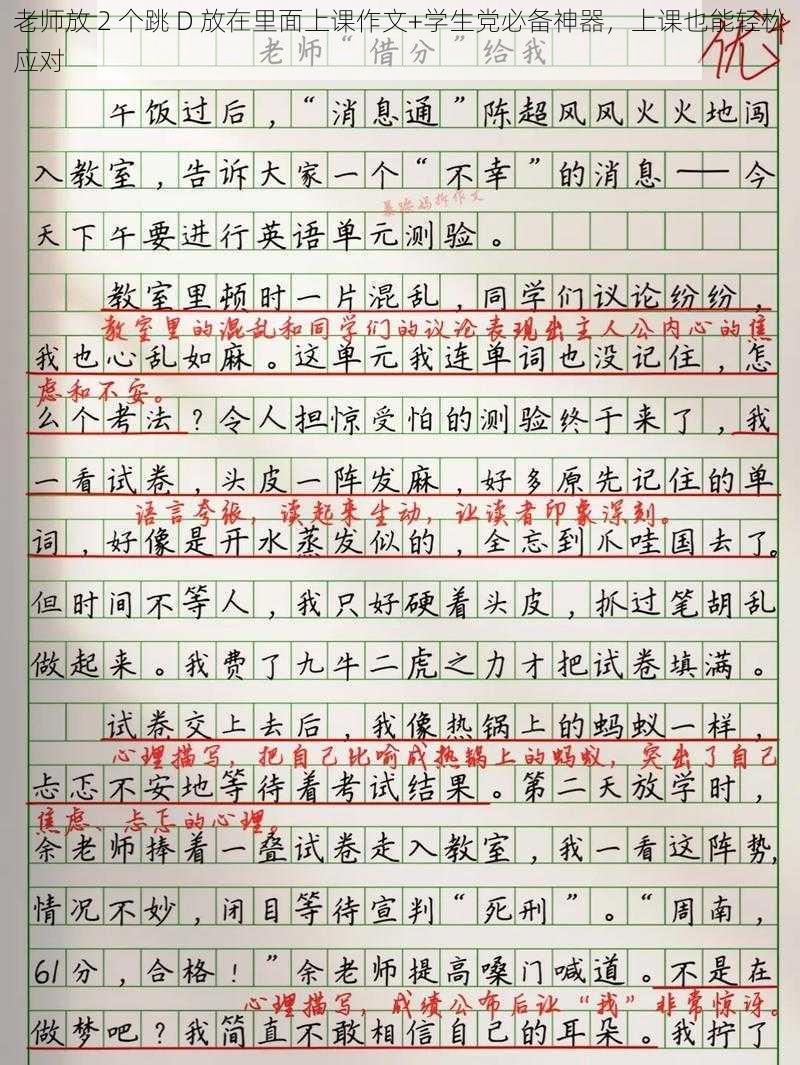 老师放 2 个跳 D 放在里面上课作文+学生党必备神器，上课也能轻松
应对
老师“借分”给我
优
午饭过后，“消息通”陈超风风火火地闯
入教室，告诉大家一个“不幸”的消息——今
暴躁妈拆作文
天下午要进行英语单元测验。
教室里顿时一片混乱，同学们议论纷纷，
教室里的混乱和同学们的议论表现出主人公内心的焦
我也心乱如麻。这单元我连单词也没记住，怎
虑和不安。
么个考法？令人担惊受怕的测验终于来了，我
一看试卷，头皮一阵发麻，好多原先记住的单
语言夸张，读起来生动，让读者印象深刻。
词，好像是开水蒸发似的，全忘到爪哇国去了。
但时间不等人，我只好硬着头皮，抓过笔胡乱
做起来。我费了九牛二虎之力才把试卷填满。
试卷交上去后，我像热锅上的蚂蚁一样，
心理描写，把自己比喻成热锅上的蚂蚁，突出了自己
忐忑不安地等待着考试结果。第二天放学时，
焦虑、忐忑的心理。
余老师捧着一叠试卷走入教室，我一看这阵势，
情况不妙，闭目等待宣判“死刑”。“周南，
61分，合格！”余老师提高嗓门喊道。不是在
心理描写，成绩公布后让“我”非常惊讶。
做梦吧？我简直不敢相信自己的耳朵。我拧了